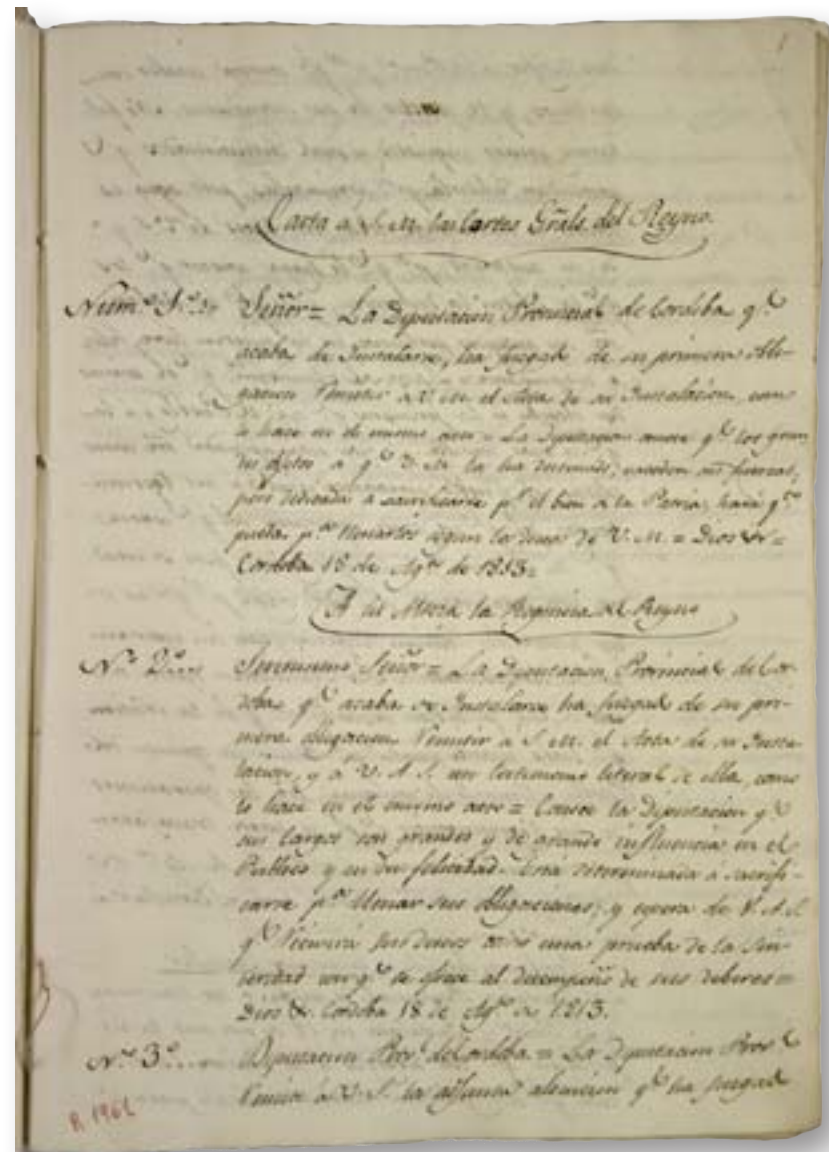 1
Carta a S. M. las Cortes Gräls. del Reyno.
Num.º 1.º Señor = La Diputacion Provincial de Cordoba q.e
acaba de Instalarse, ha juzgado de su primera obli-
gacion Remitir a V. M. el Acta de su Instalacion, como
lo hace en el mismo acto = La Diputacion conoce q.e los gran
des objetos a q.e V. M. la ha destinado, exceden sus fuerzas,
pero dedicada a sacrificarse p.r el bien de la Patria, hará q.to
pueda p.a llenarlos segun los deseos de V. M. = Dios &.ª =
Cordoba 18 de Ag.to de 1813 =
A la Regencia del Reyno
N.º 2.º Serenisimo Señor = La Diputacion Provincial de Cor-
doba q.e acaba de Instalarse ha juzgado de su pri-
mera obligacion Remitir a S. M. el Acta de su Insta-
lacion, y á V. A. S. un testimonio literal de ella, como
lo hace en el mismo acto = Conoce la Diputacion q.e
sus cargos son grandes y de grande influencia en el
Publico y en su felicidad. Está determinada á sacrifi-
carse p.r llenar sus obligaciones, y espera de V. A. S.
q.e Recivirá sus deseos como una prueba de la sin-
ceridad con q.e se ofrece al desempeño de sus deberes =
Dios &. Cordoba 18 de Ag.to de 1813.
N.º 3.º Diputacion Prov.l de Cordoba = La Diputacion Prov.l
Remite á V. S. la adjunta q.e ha juzgado
R. 1961